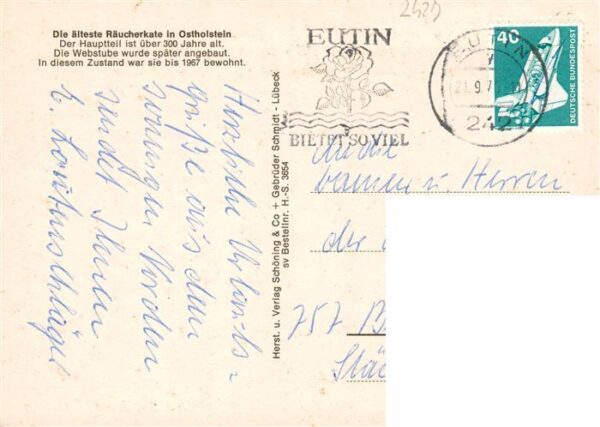 Die älteste Räucherkate in Ostholstein
Der Hauptteil ist über 300 Jahre alt.
Die Webstube wurde später angebaut.
In diesem Zustand war sie bis 1967 bewohnt.
Herzliche Urlaubs-
grüße aus dem
sonnigen Norden
sendet Ihnen
Herst. u. Verlag Schöning & Co + Gebrüder Schmidt - Lübeck
sv Bestellnr. H.-S. 3654
EUTIN
BIETET SO VIEL
EUTIN
242
40
DEUTSCHE BUNDESPOST
An die
Damen u. Herren
der
757 B